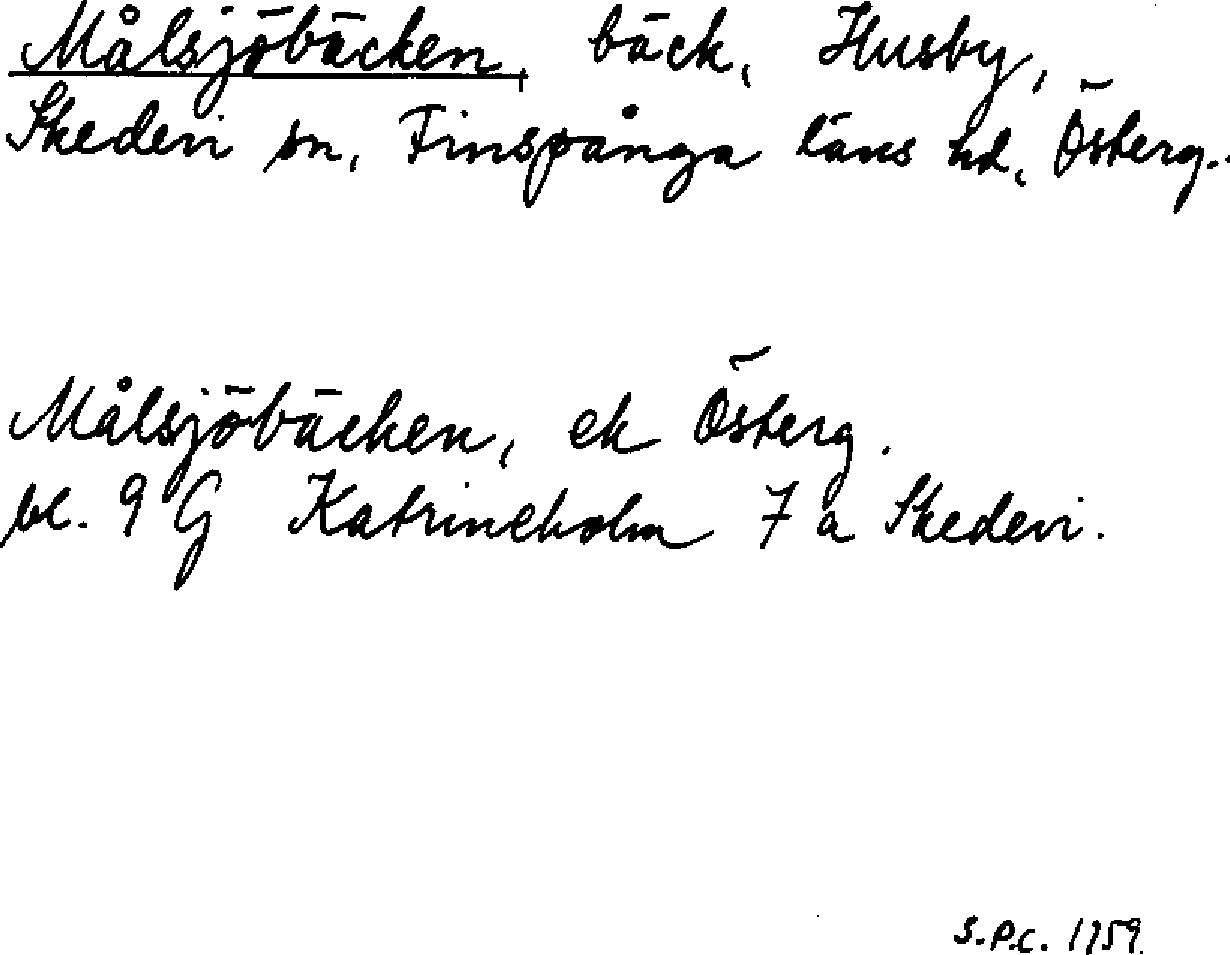 Målsjöbäcken, bäck, Husby,
Skedevi sn, Finspånga läns hd, Österg.
Målsjöbäcken, ek Österg.
bl. 9 G Katrineholm 7 a Skedevi.
S.P.C. 1959.